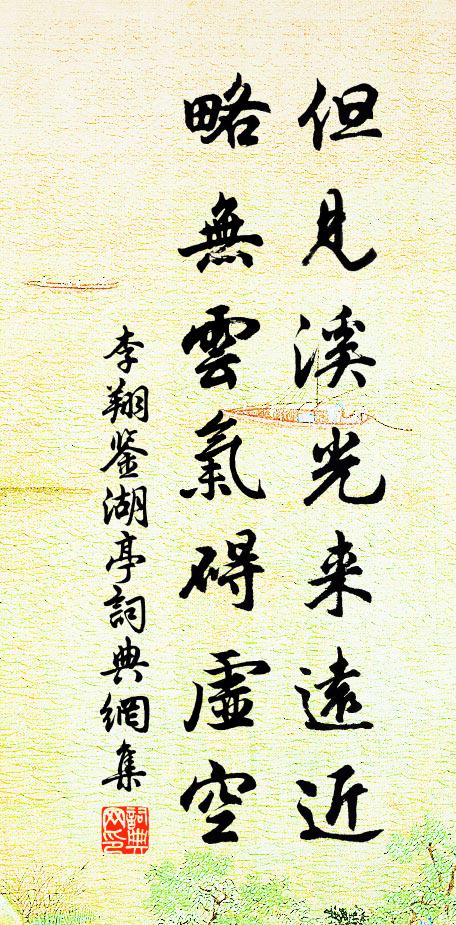 但見溪光来遠近
略無雲氣碍虛空
李翔鉴湖亭詞典網集
詞典网印